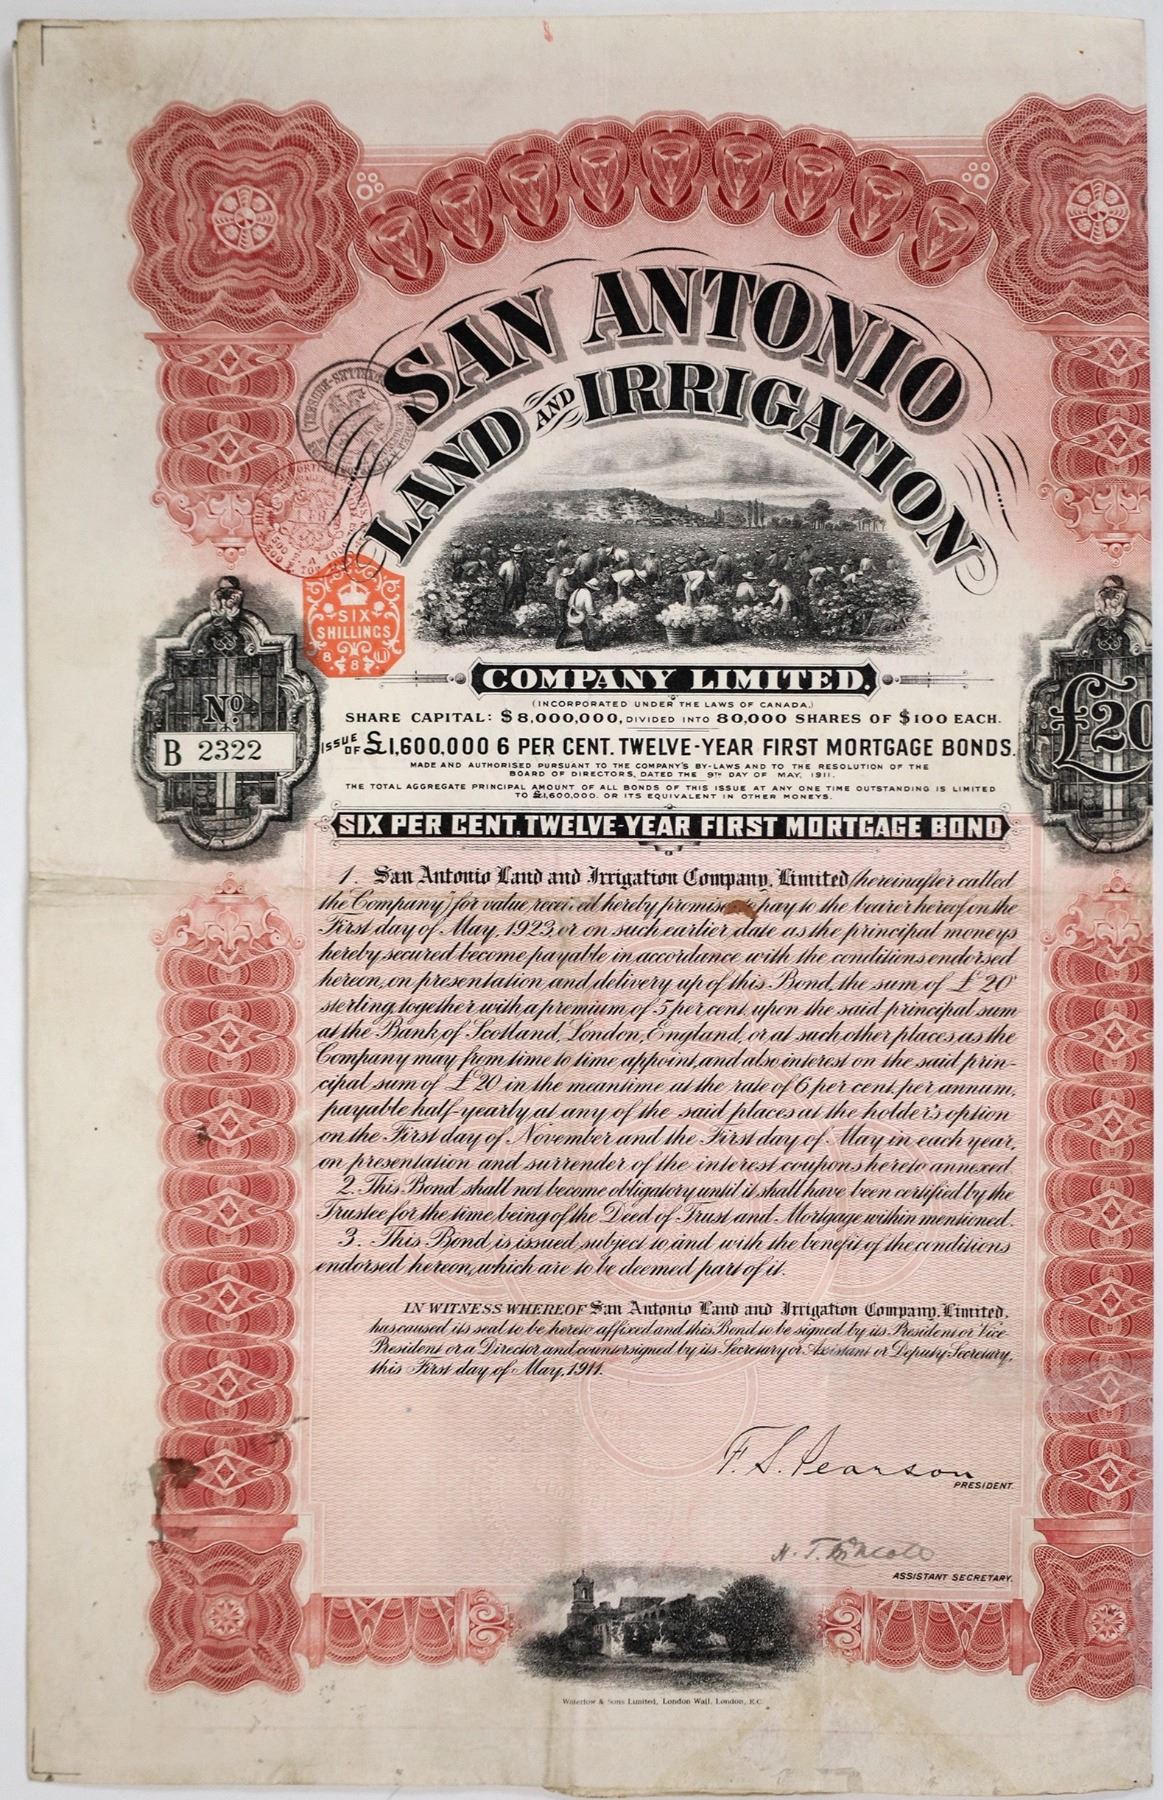 SAN ANTONIO
LAND AND IRRIGATION
SIX
SHILLINGS
8 8
COMPANY LIMITED.
(INCORPORATED UNDER THE LAWS OF CANADA.)
SHARE CAPITAL: $8,000,000, DIVIDED INTO 80,000 SHARES OF $100 EACH.
No
B 2322
£20
ISSUE OF £1,600,000 6 PER CENT. TWELVE-YEAR FIRST MORTGAGE BONDS.
MADE AND AUTHORISED PURSUANT TO THE COMPANY'S BY-LAWS AND TO THE RESOLUTION OF THE
BOARD OF DIRECTORS, DATED THE 9TH DAY OF MAY, 1911.
THE TOTAL AGGREGATE PRINCIPAL AMOUNT OF ALL BONDS OF THIS ISSUE AT ANY ONE TIME OUTSTANDING IS LIMITED
TO £1,600,000. OR ITS EQUIVALENT IN OTHER MONEYS.
SIX PER CENT. TWELVE-YEAR FIRST MORTGAGE BOND
1. San Antonio Land and Irrigation Company, Limited (hereinafter called
the "Company") for value received hereby promises to pay to the bearer hereof on the
First day of May, 1923, or on such earlier date as the principal moneys
hereby secured become payable in accordance with the conditions endorsed
hereon, on presentation and delivery up of this Bond, the sum of £20
sterling, together with a premium of 5 per cent. upon the said principal sum
at the Bank of Scotland, London, England, or at such other places as the
Company may from time to time appoint, and also interest on the said prin-
cipal sum of £20 in the meantime at the rate of 6 per cent. per annum,
payable half-yearly at any of the said places at the holder's option
on the First day of November and the First day of May in each year,
on presentation and surrender of the interest coupons hereto annexed.
2. This Bond shall not become obligatory until it shall have been certified by the
Trustee for the time being of the Deed of Trust and Mortgage within mentioned.
3. This Bond is issued subject to and with the benefit of the conditions
endorsed hereon, which are to be deemed part of it.
IN WITNESS WHEREOF San Antonio Land and Irrigation Company, Limited,
has caused its seal to be hereto affixed and this Bond to be signed by its President or Vice-
President or a Director and countersigned by its Secretary or Assistant or Deputy-Secretary,
this First day of May, 1911.
F. S. Pearson
PRESIDENT.
ASSISTANT SECRETARY.
Waterlow & Sons Limited, London Wall, London, E.C.